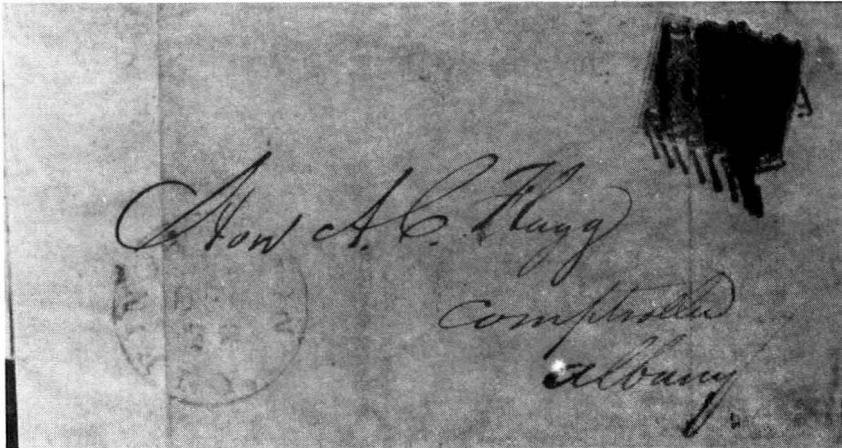 Hon A. C. Flagg
comptroller
albany